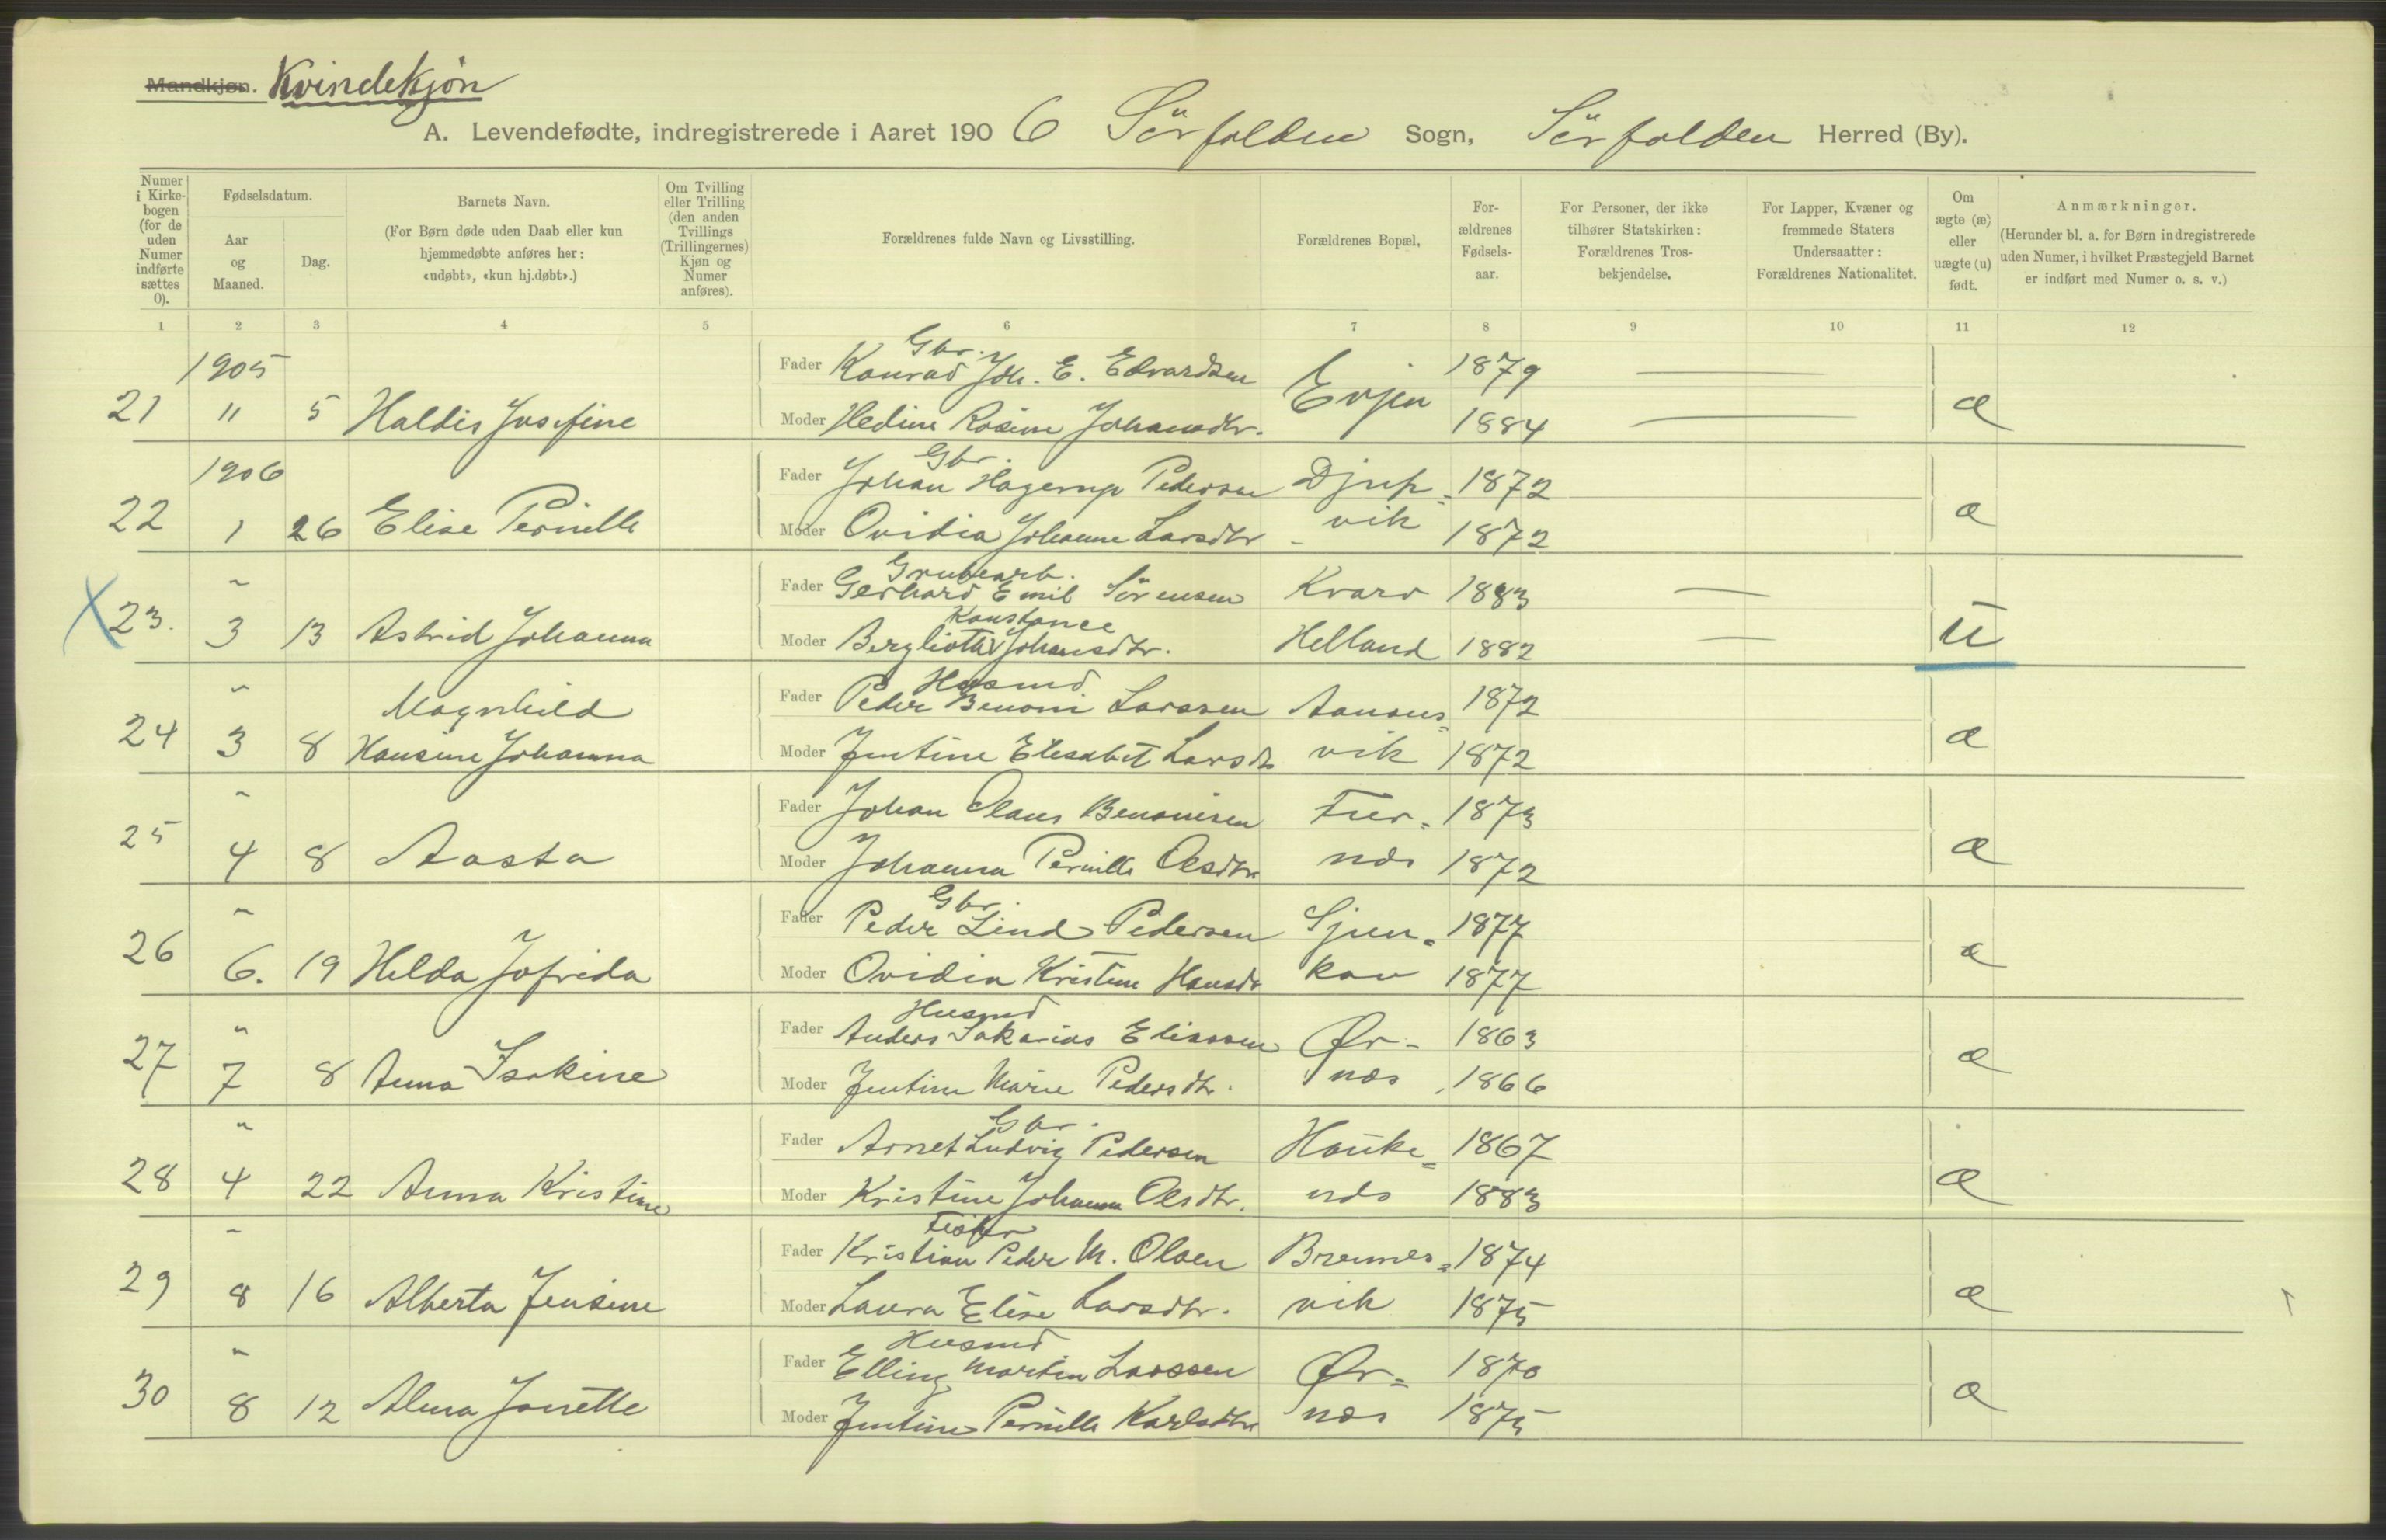 Mandkjøn. Kvindekjøn
A. Levendefødte, indregistrerede i Aaret 1906 Sörfolden Sogn, Sörfolden Herred (By).
Numer i Kirkebogen (for de uden Numer indførte sættes 0).
Fødselsdatum.
Aar og Maaned.
Dag.
Barnets Navn.
(For Børn døde uden Daab eller kun hjemmedøbte anføres her: «udøbt», «kun hj.døbt».)
Om Tvilling eller Trilling (den anden Tvillings (Trillingernes) Kjøn og Numer anføres).
Forældrenes fulde Navn og Livsstilling.
Forældrenes Bopæl,
Forældrenes Fødselsaar.
For Personer, der ikke tilhører Statskirken: Forældrenes Trosbekjendelse.
For Lapper, Kvæner og fremmede Staters Undersaatter: Forældrenes Nationalitet.
Om ægte (æ) eller uægte (u) født.
Anmærkninger.
(Herunder bl. a. for Børn indregistrerede uden Numer, i hvilket Præstegjeld Barnet er indført med Numer o. s. v.)
1 2 3 4 5 6 7 8 9 10 11 12
1905 Gbr.
Fader Konrad Joh. E. Edvardsen Evjen 1879
21 11 5 Haldis Josefine Moder Hedine Rosine Johansdtr. 1884 æ
1906 Gbr.
Fader Johan Hagerup Pedersen Djup= 1872
22 1 26 Elise Pernille Moder Ovidia Johanne Larsdtr vik 1872 æ
" Grubearb.
Fader Gerhard Emil Sörensen Kvarv 1883
Konstance
X 23. 3 13 Astrid Johanna Moder Bergliotha Johansdtr. Helland 1882 u
" Husmd
Magnhild Fader Peder Benoni Larssen Aanons= 1872
24 3 8 Hansine Johanna Moder Jentine Elesabet Larsdtr vik 1872 æ
" Fader Johan Olaus Benonisen Fur= 1873
25 4 8 Aasta Moder Johanna Pernille Olsdtr næs 1872 æ
" Gbr.
Fader Peder Lind Pedersen Sjun= 1877
26 6. 19 Helda Jofrida Moder Ovidia Kristine Hansdtr kav 1877 æ
" Husmd
Fader Anders Sakarias Eliassen Ør- 1863
27 7 8 Anna Isakine Moder Jentine Marie Pedersdtr. næs 1866 æ
" Gbr.
Fader Arnet Ludvig Pedersen Hauke= 1867
28 4 22 Anna Kristine Moder Kristine Johanna Olsdtr. næs 1883 æ
" Fisker
Fader Kristian Peder M. Olsen Brennes= 1874
29 8 16 Alberta Jensine Moder Laura Elise Larsdtr. vik 1875 æ
" Husmd
Fader Elling Martin Larssen Ør= 1870
30 8 12 Alma Jonette Moder Jentine Pernille Karlsdtr næs 1875 æ